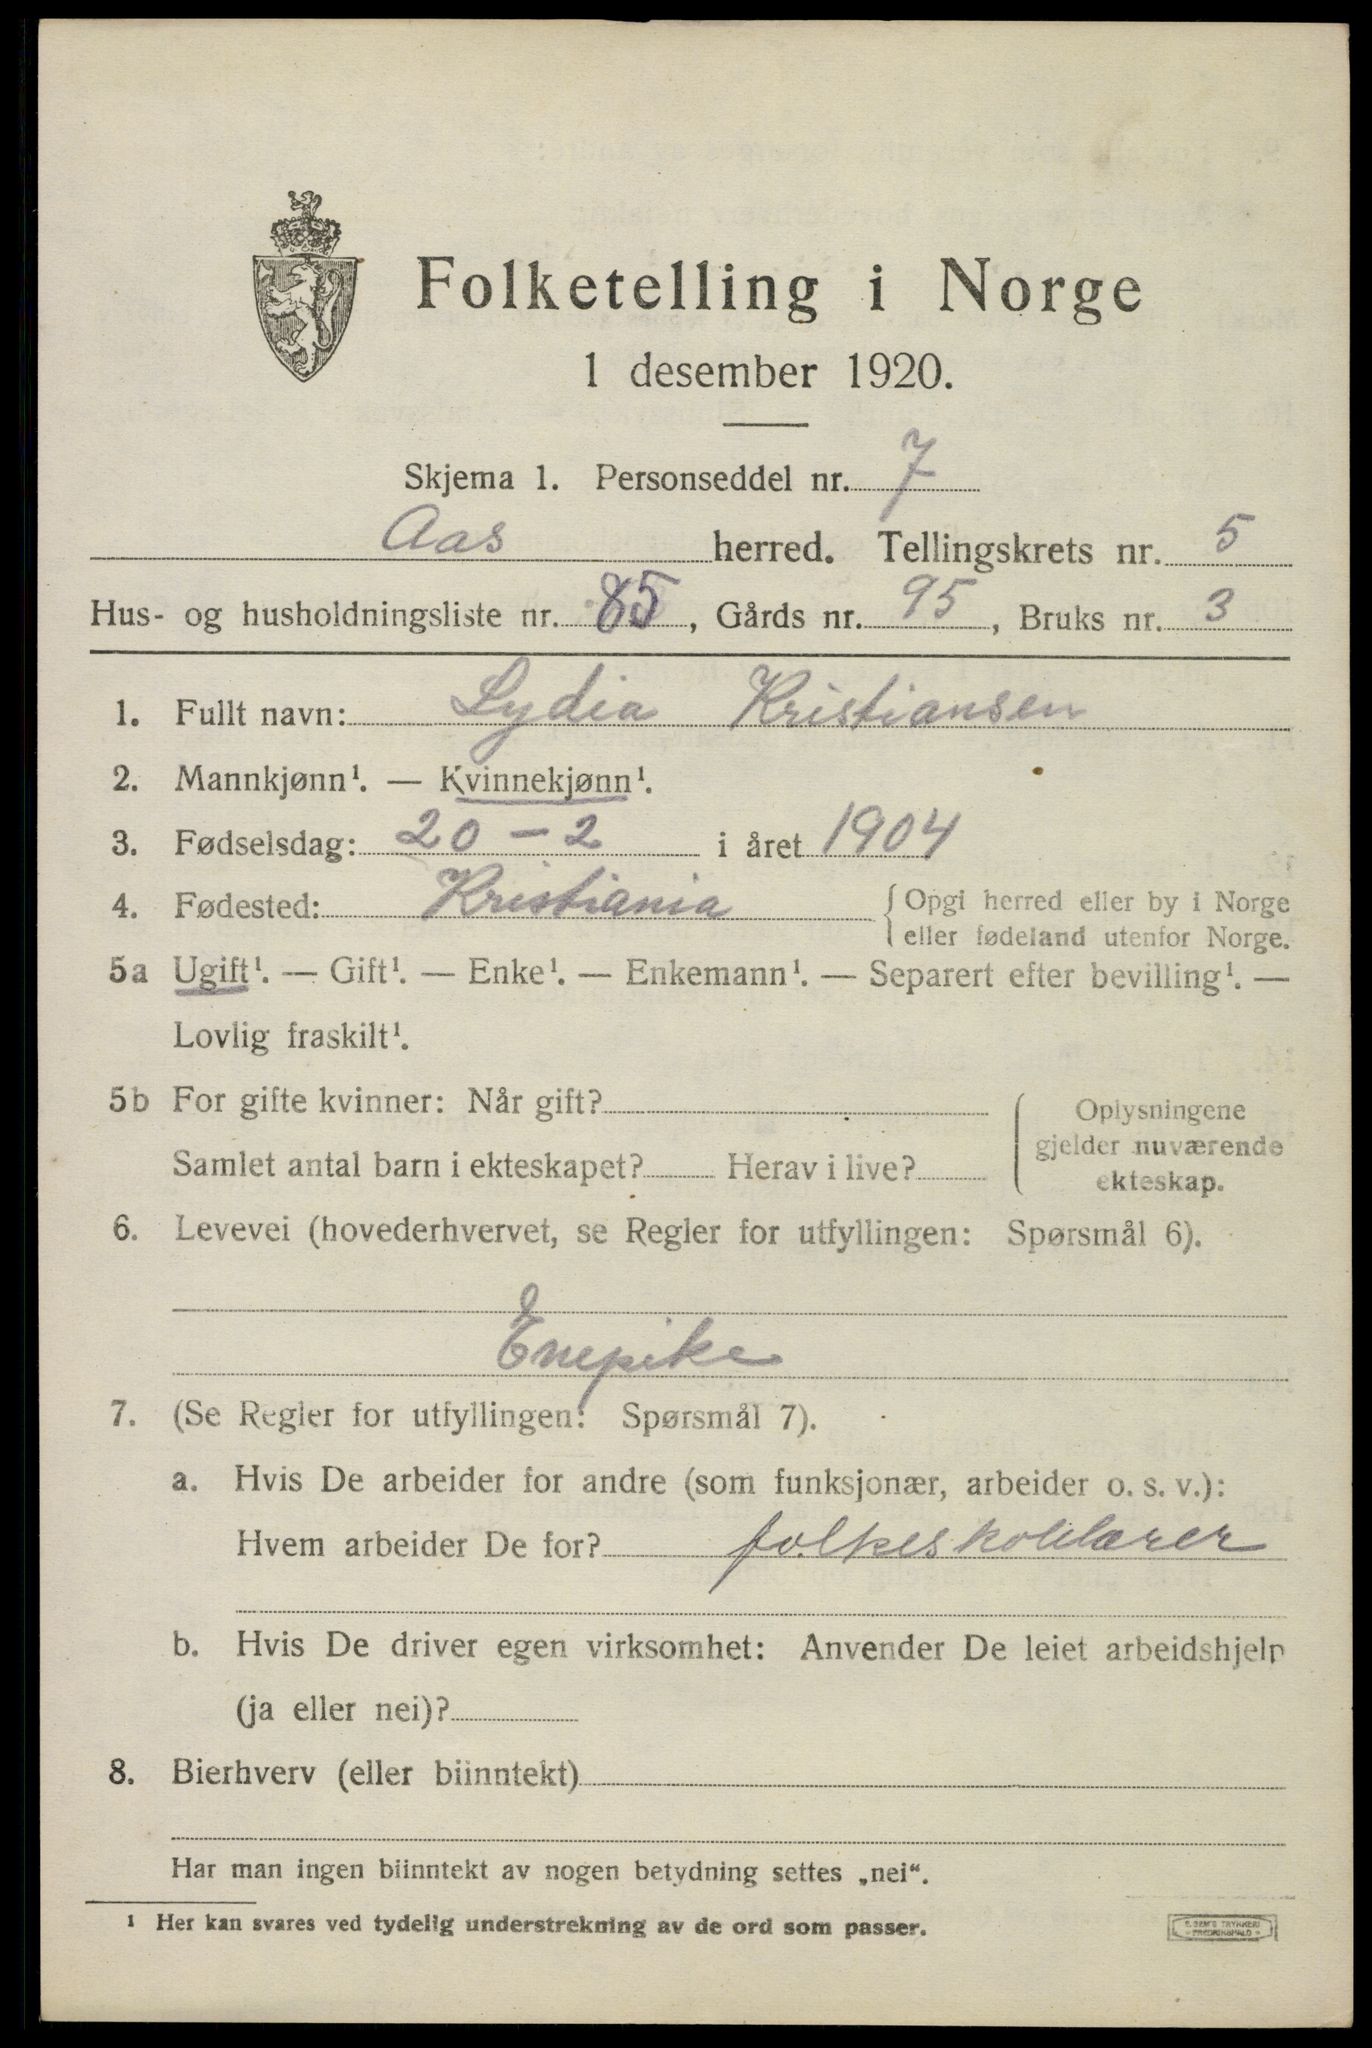 Folketelling i Norge
1 desember 1920.
Skjema 1. Personseddel nr. 7
Aas herred. Tellingskrets nr. 5
Hus- og husholdningsliste nr. 85, Gårds nr. 95, Bruks nr. 3
1. Fullt navn: Lydia Kristiansen
2. Mannkjønn¹. — Kvinnekjønn¹.
3. Fødselsdag: 20 – 2 i året 1904
4. Fødested: Kristiania { Opgi herred eller by i Norge
eller fødeland utenfor Norge.
5a Ugift¹. — Gift¹. — Enke¹. — Enkemann¹. — Separert efter bevilling¹. —
Lovlig fraskilt¹.
5b For gifte kvinner: Når gift?
Samlet antal barn i ekteskapet? Herav i live?
Oplysningene
gjelder nuværende
ekteskap.
6. Levevei (hovederhvervet, se Regler for utfyllingen: Spørsmål 6).
Enepike
7. (Se Regler for utfyllingen: Spørsmål 7).
a. Hvis De arbeider for andre (som funksjonær, arbeider o. s. v.):
Hvem arbeider De for? folkeskolelærer
b. Hvis De driver egen virksomhet: Anvender De leiet arbeidshjelp
(ja eller nei)?
8. Bierhverv (eller biinntekt)
Har man ingen biinntekt av nogen betydning settes „nei“.
¹ Her kan svares ved tydelig understrekning av de ord som passer.
TRYKKERI
FREDRIKSHALD